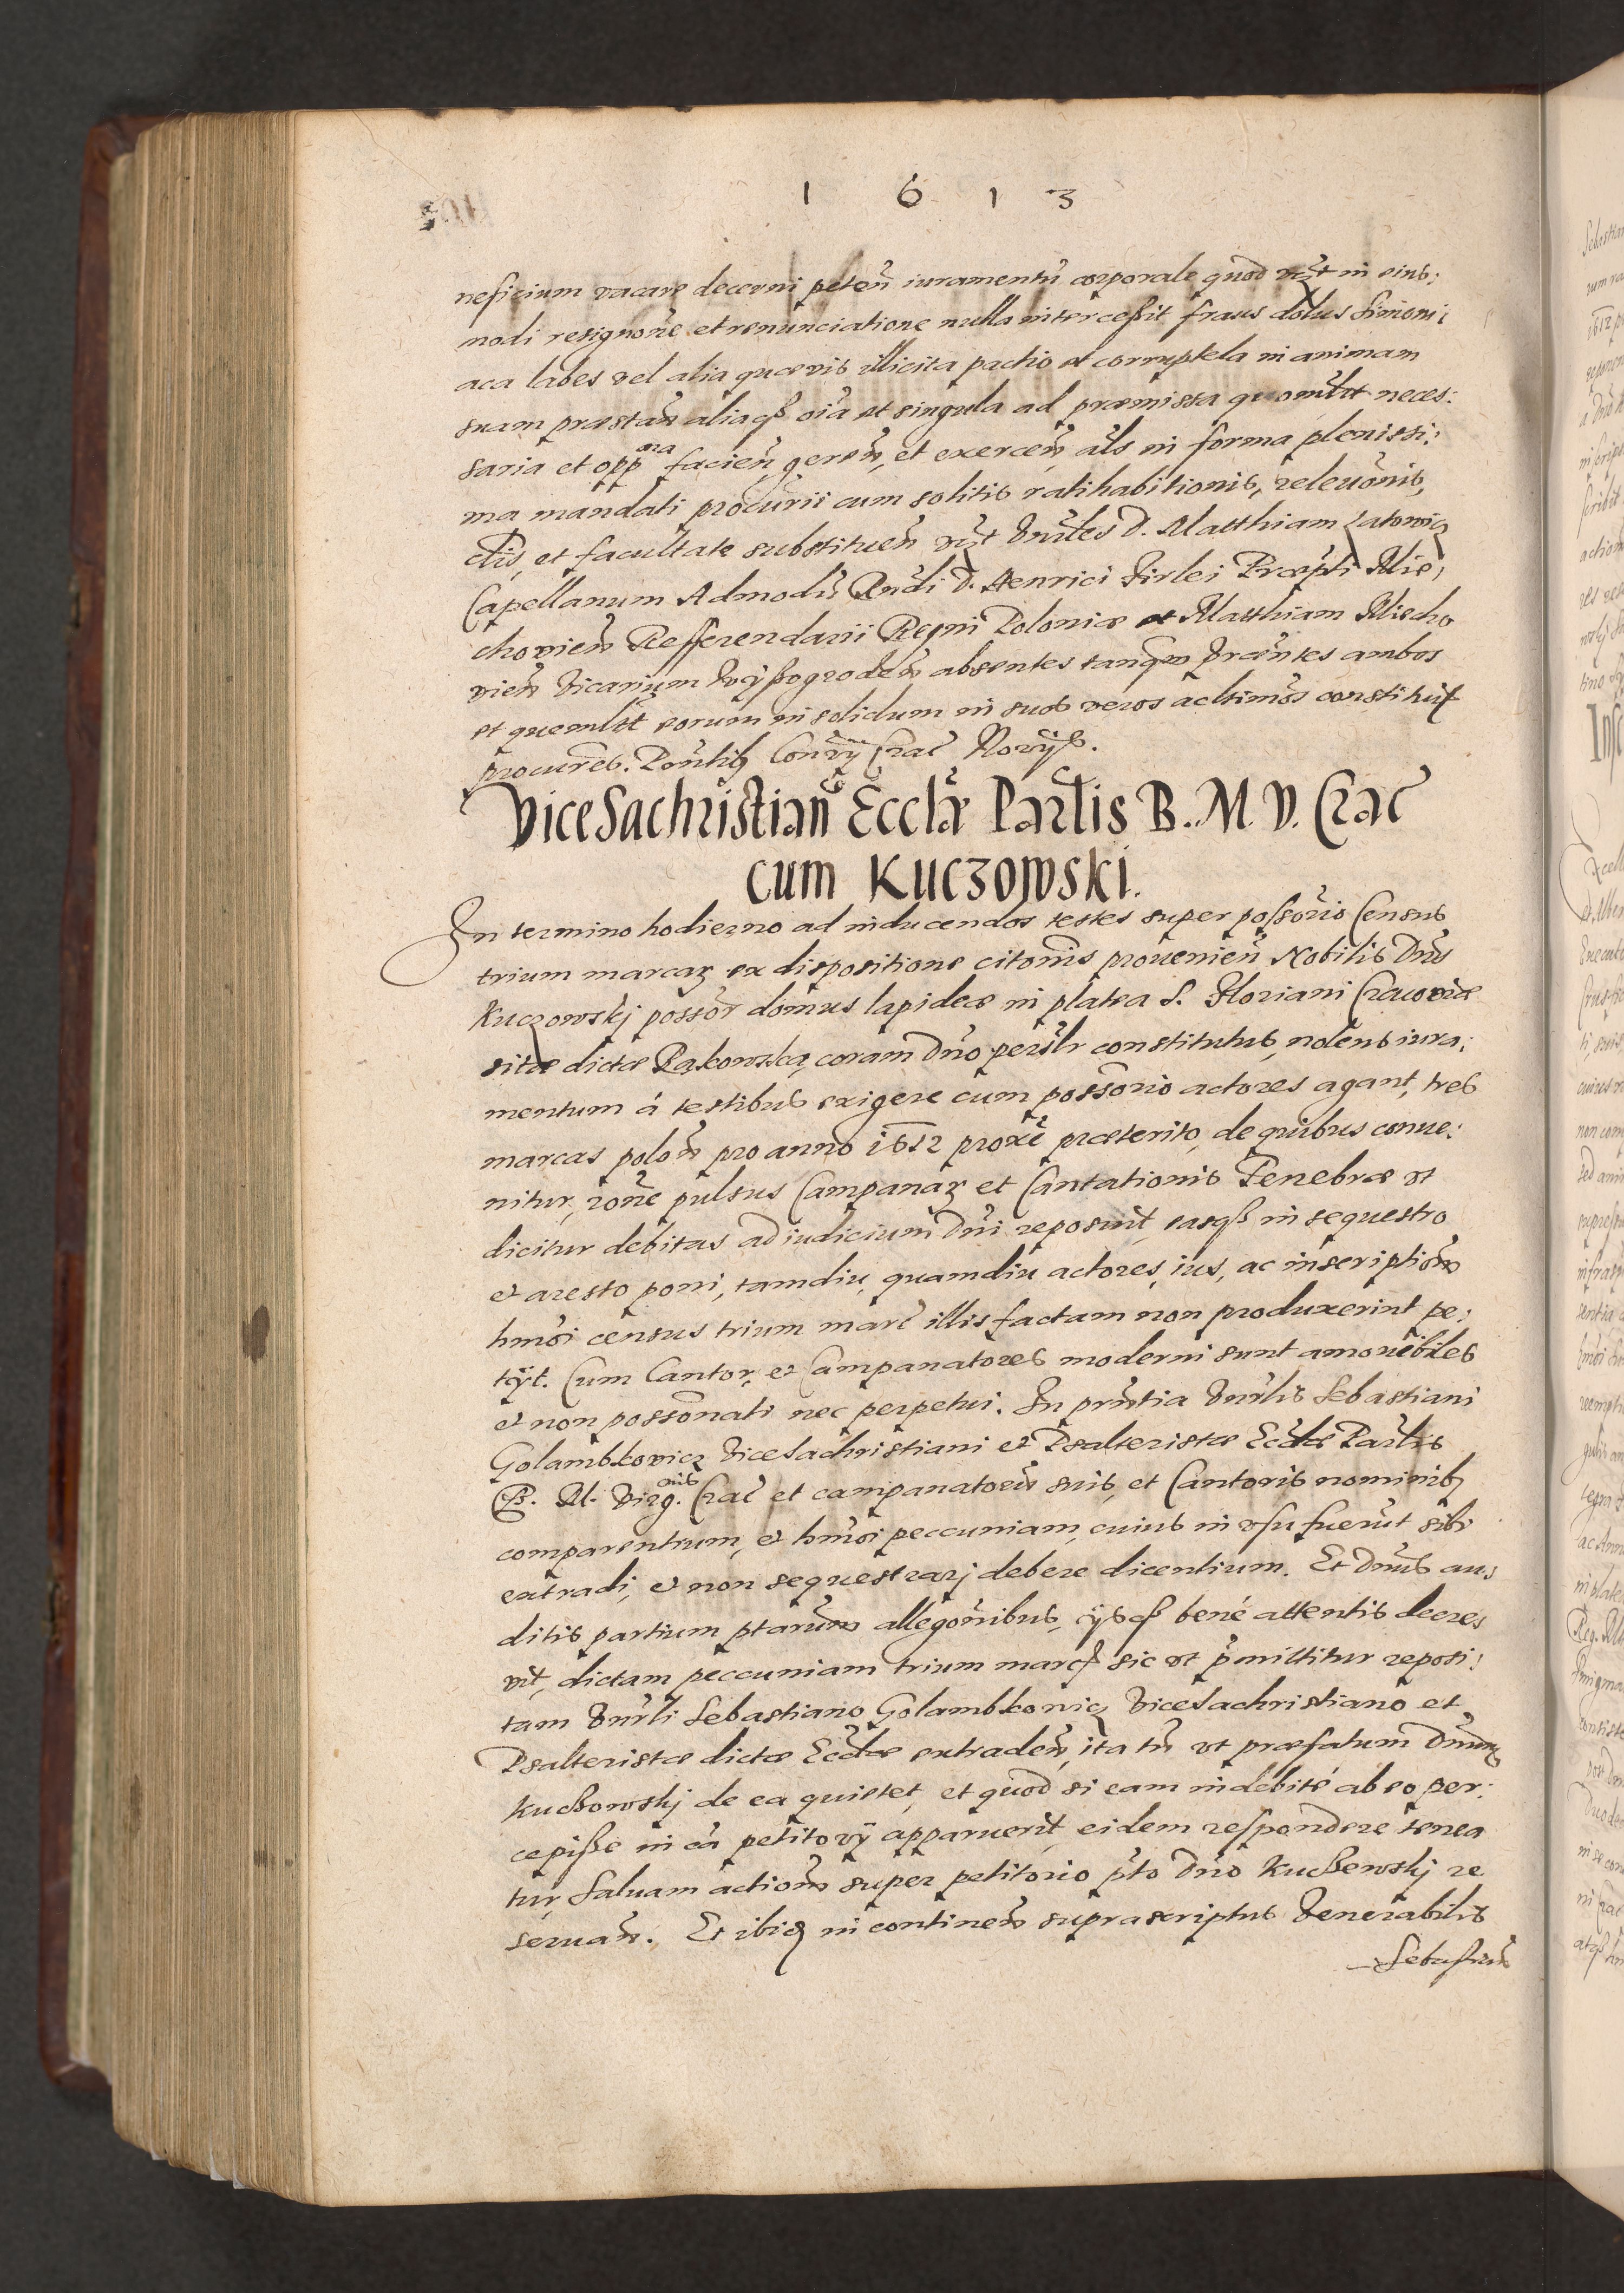 1613
neficium vacare decerni peten̄ iuramentū corporale quod vz̄t in eius:
modi resignōne et renunciatione nulla intercessit fraus dolus Simoni
aca labes vel alia quævis illicita pactio et corruptela in animam
suam præstan̄ aliaq3 oīa et singula ad præmissa quomłtt neces:
saria et opp^na facien̄, geren̄, et exercen̄, als in forma plenissi:
ma mandati procūrii cum solitis ratihabitionis, relevōnis,
clis, et facultate substituen̄ Vnrles D. Matthiam
Capellanum Admodū Rndi D. Henrici Firlei Præpti Mie,
chovien̄ Refferendarii Regni Poloniæ et Matthiam Miecho
vien̄ Vicarium Wyßogroden̄ absentes tanq̄m præn̄tes ambos
et quemlt eorum in solidum in suos veros ac ltimos constituit
procures. Pn̄tib9 Crac
ViceSachristian^o Ecclæ Parlis B. M. V. Crac
cum Kuczowski.
In termino hodierno ad inducendos testes super possorio Census
trium marcar ex dispositione citonis provenien̄ Nobilis Dnūs
Kuczowskj possor domus lapideæ in platea S. Floriani Cracoviæ
sitæ dictæ Rąkowska, coram Dno persłr constitutus, nolens iura:
mentum á testibus exigere cum possorio actores agant, tres
marcas polon̄ pro anno 1612 proxē præterito, de quibus conve:
nitur, rōne pulsus Campanar et Cantationis Tenebræ ut
dicitur debitas ad iudicium Dni reposuit, easq3 in sequestro
et aresto poni, tamdiu, quamdiu actores, ius, ac inscription̄
hmōi census trium marc illis factam non produxerint pe:
tÿt. Cum Cantor, et Campanatores moderni sunt amovibiles
et non possonati nec perpetui. In prn̄tia Vnrlis Sebastiani
Golambkovicz ViceSachristiani et Psalteristæ Ecclæ Parlis
B. M. Virg^nis. Crac et campanatorū suis, et Cantoris nominib9
comparentium, et hmōi peccuniam, cuius in usu fuerūt sibi
extradi, et non sequestrarj debere dicentium. Et Dnūs au,
ditis partium ptarum allegōnibus, ÿsq3 bené attentis decre,
vit, dictam peccuniam trium marc sic ut p̄mittitur reposi:
tam Vnrli Sebastiano Golambkovicz ViceSachristiano et
Psalteristæ dictæ Ecclæ extraden̄, ita tn̄ ut præfatum Dnūm
Kucßowskj de ea quietet, et quod si eam indebité ab eo per:
cepisse in cā petitorÿ apparuerit, eidem respondere tenea
tur, Salvam action̄ super petitorio p̄to Dno Kucßewskj re
servan̄. Et ibiq3 in continen̄ suprascriptus Venerabilis
Sebastian̄